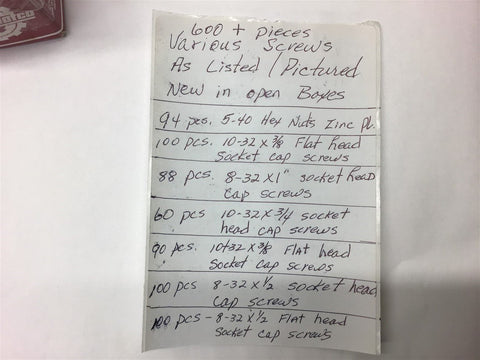 600 + pieces
Various Screws
As Listed / Pictured
New in open Boxes
94 pcs. 5-40 Hex Nuts Zinc Pl.
100 pcs. 10-32 x 3/8 Flat head
Socket cap screws
88 pcs. 8-32 x 1" socket head
cap screws
60 pcs 10-32 x 3/4 socket
head cap screws
90 pcs. 10-32 x 3/8 Flat head
Socket cap screws
100 pcs 8-32 x 1/2 socket head
cap screws
100 pcs - 8-32 x 1/2 Flat head
Socket cap screws